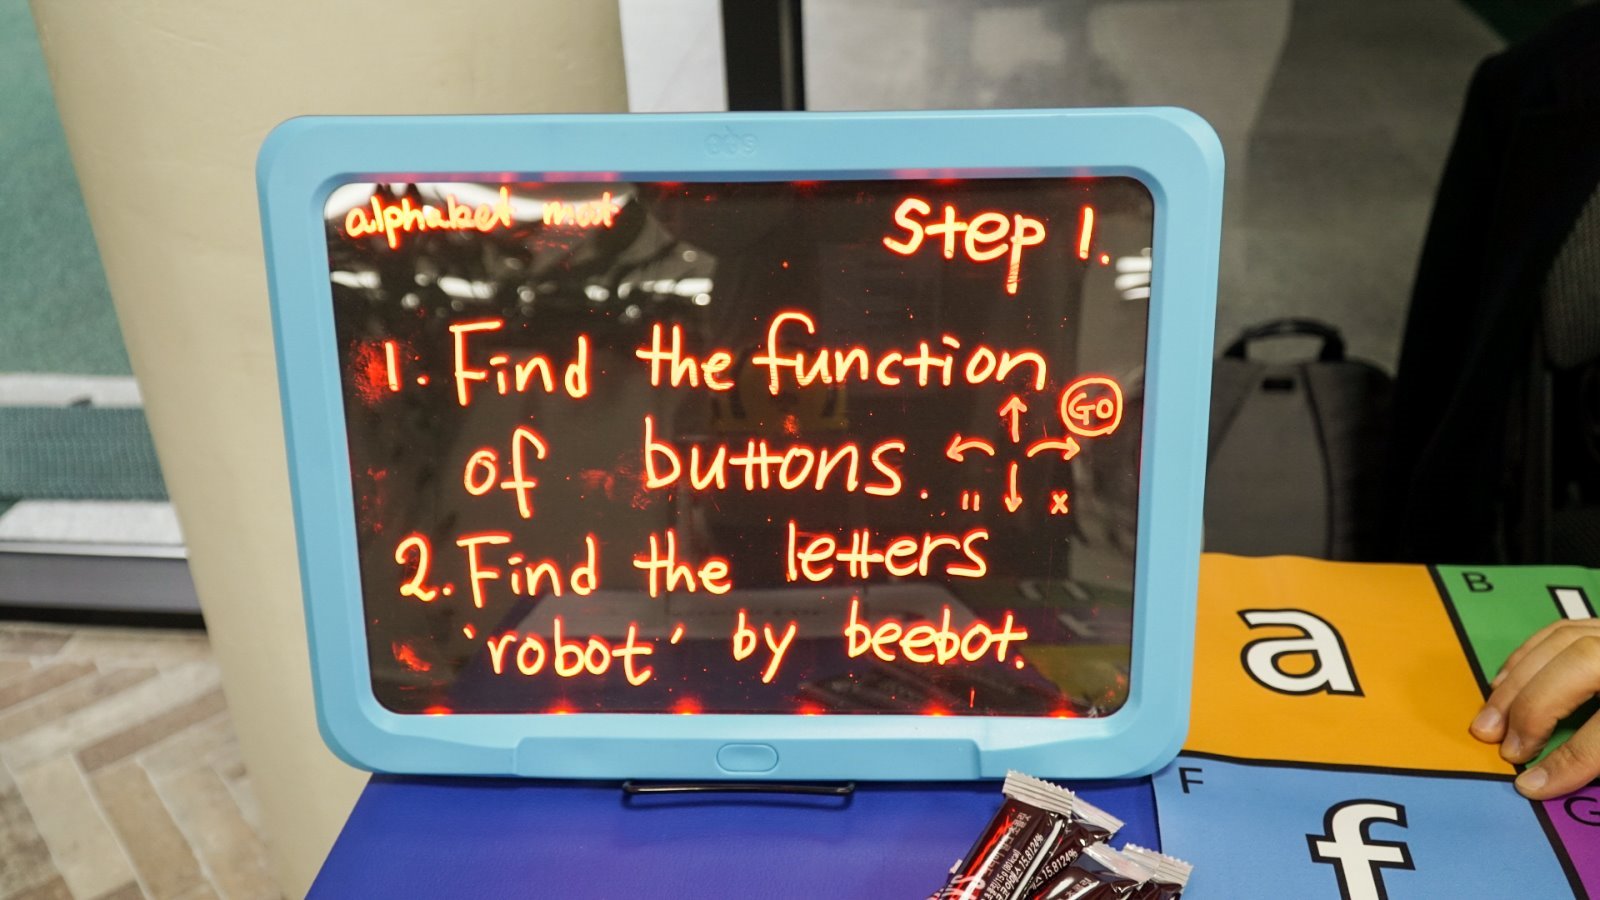 alphabet mat
Step 1.
1. Find the function
of buttons.
GO
" x
2. Find the letters
'robot' by beebot.
a
B
F
f
G
15.8124%
15.8124%